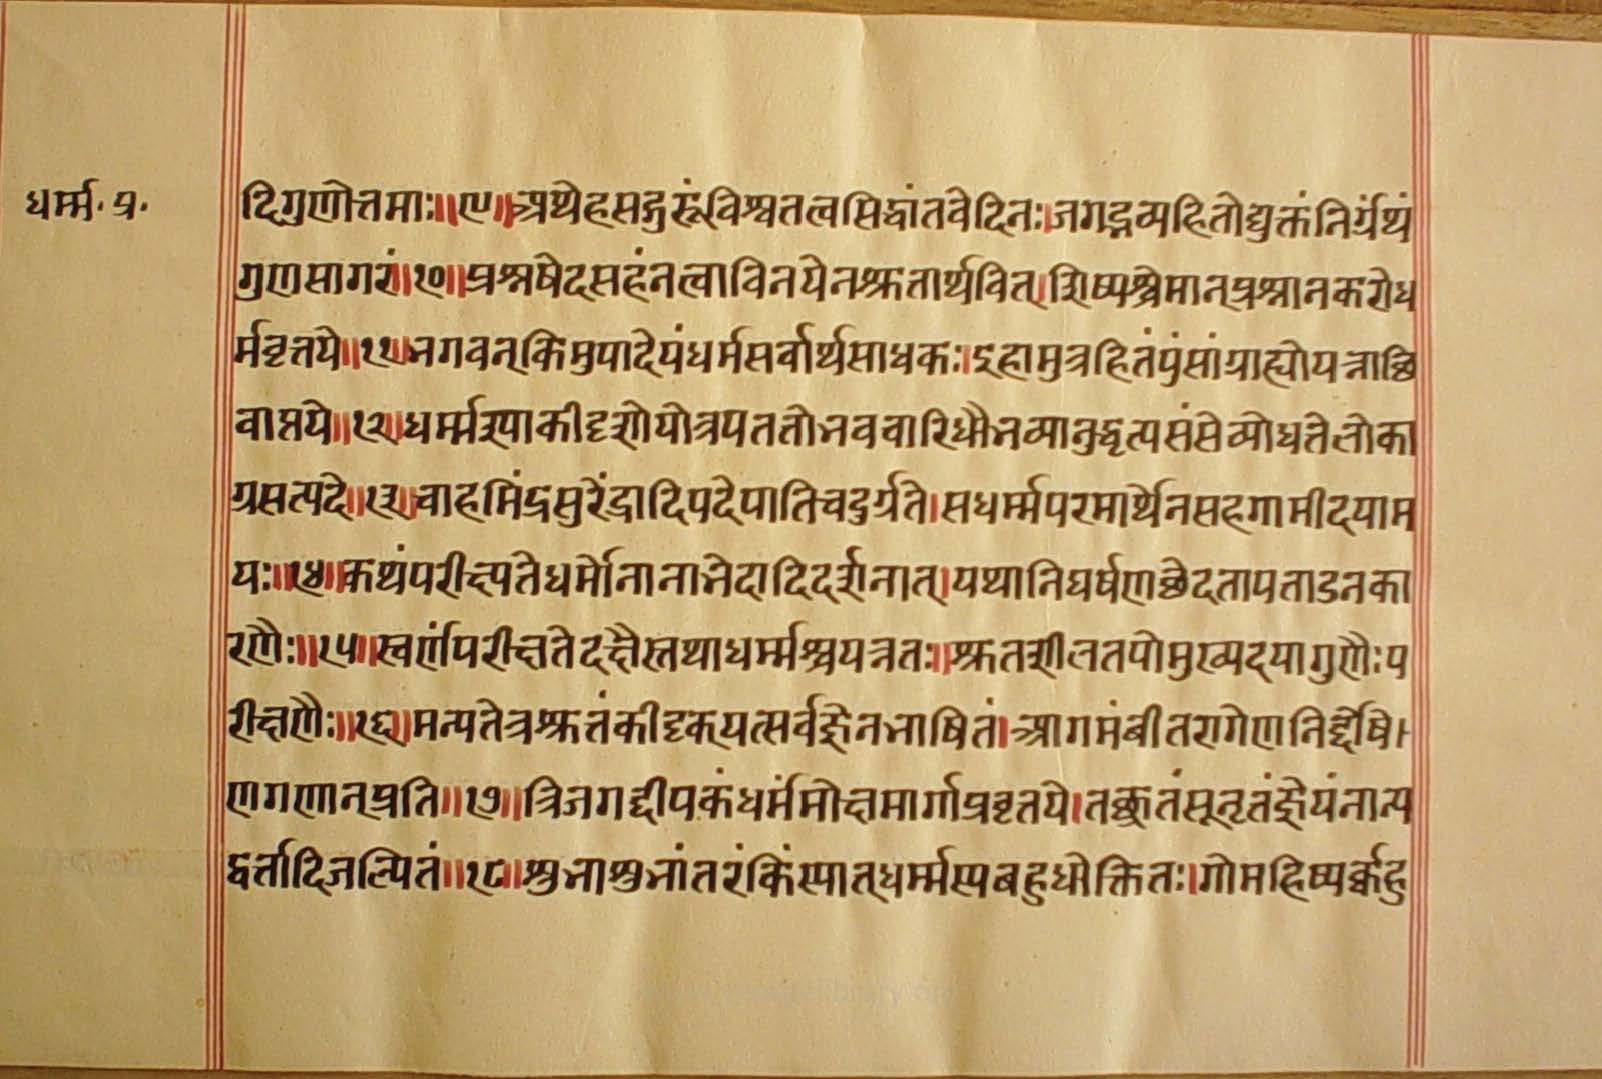 धर्म्म॰ प्र॰
दिगुणोत्तमाः॥९॥अथेहसद्गुरूंविश्वतत्वसिद्धांतवेदिनः।जगद्भव्यहितोद्युक्तंनिर्ग्रंथं
गुणसागरं॥१०॥प्रश्नषेदसहंनत्वाविनयेनश्रुतार्थवित्।शिष्यश्चेमान्प्रश्नानकरोध
र्मवृत्तये॥११॥भगवन्किमुपादेयंधर्मसर्वार्थसाधकः।इहामुत्रहितंपुंसांग्राह्योयत्नाच्छि
वाप्तये॥१२॥धर्म्मस्याकीदृशोयोत्रपततोभववारिधौभव्यानुद्धृत्यसंसेव्योधतेलोका
ग्रसत्पदे॥१३॥वाहमिंद्रसुरेंद्रादिपदेपातिचदुर्गते।सधर्म्मपरमार्थेनसहगामीदयाम
यः॥१४॥कथंपरीक्ष्यतेधर्मोनानाभेदादिदर्शनात्।यथानिघर्षणछेदतापताडनका
रणैः॥१५॥स्वर्णंपरीक्षतेदक्षैस्तथाधर्म्मश्चयत्नतः॥श्रुतशीलतपोमुख्यदयागुणैःप
रीक्षणैः॥१६॥मत्यतेत्रश्रुतंकीदृक्यत्सर्वज्ञेनभाषितं।आगमंवीतरागेणनिर्द्दोषे।
णगणान्प्रति॥१७॥त्रिजगद्दीपकंधर्ममोक्षमार्गाप्रवृतये।तच्छ्रुतंसूनृतंज्ञेयंनान्य
द्धर्त्तादिजल्पितं॥१८॥शुभाशुभांतरंकिंस्यात्धर्म्मस्यबहुधोक्तितः।गोमहिष्यर्कदु